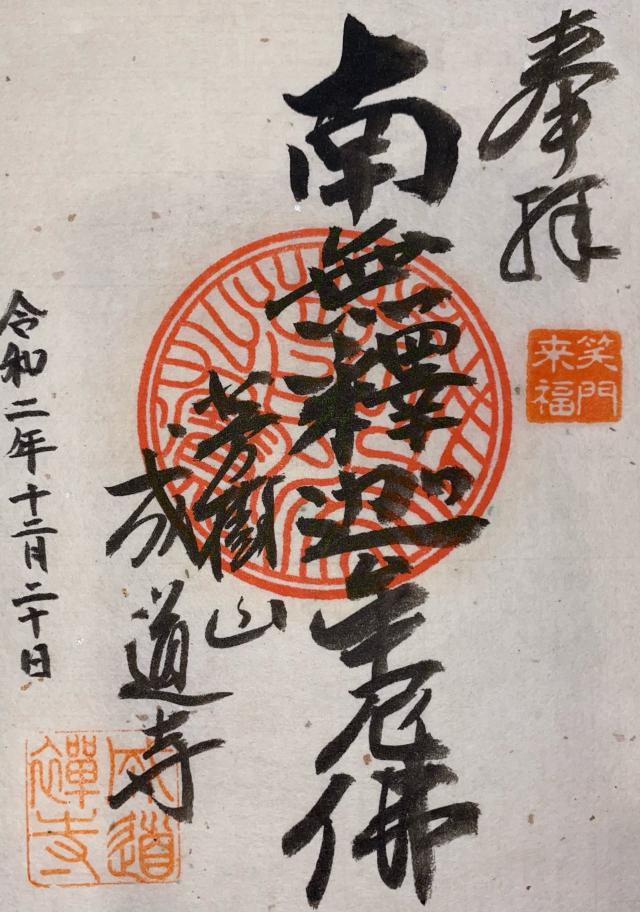 奉拝
笑門
来福
南無釋迦牟尼佛
芳樹山
成道寺
令和二年十二月二十日
成道
禅寺